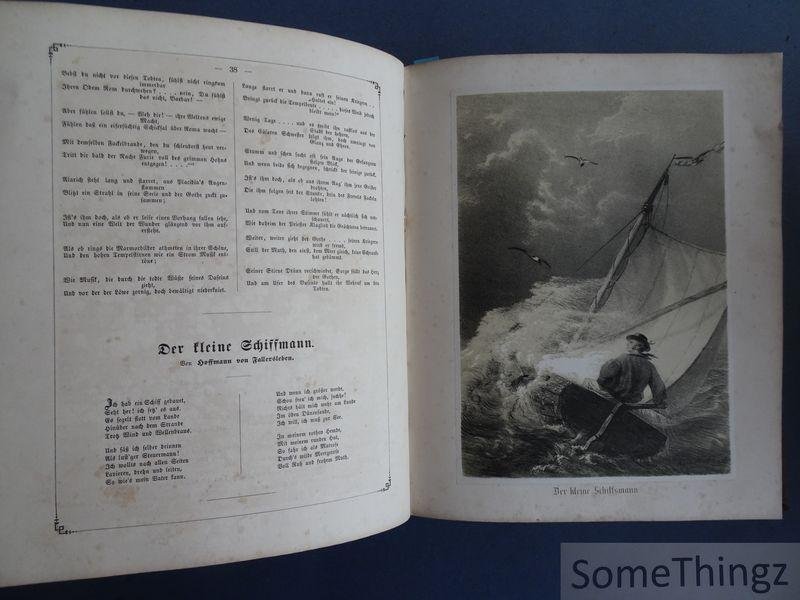 — 38 —
Bebst du nicht vor diesen Todten, fühlst nicht ringsum
immerdar
Ihren Odem Rom durchwehen? . . . . nein, Du fühlst
das nicht, Barbar! —
Aber fühlen sollst du, — Weh dir! — ihre Weltens ewige
Macht,
Fühlen daß ein eifersüchtig Schicksal über Roma wacht —
Mit demselben Fackelbrande, den du schleuderst heut ver-
wegen,
Tritt dir bald der Rache Furie voll des grimmen Hohns
entgegen! . . . ."
Alarich steht lang und starret, aus Placidia's Augen-
flammen
Blitzt ein Strahl in seine Seele und der Gothe zuckt zu-
sammen;
Ist's ihm doch, als ob er leise einen Vorhang fallen sehe,
Und nun eine Welt der Wunder glänzend vor ihm auf-
erstehe.
Als ob rings die Marmorbilder athmeten in ihrer Schöne,
Und den hohen Tempelstirnen wie ein Strom Musik ent-
töne;
Wie Musik, die durch die todte Wüste seines Daseins
zieht,
Und vor der der Löwe zornig, doch bewältigt niederkniet.
Lange starrt er und dann ruft er seinen Kriegern . .
„Haltet ein!
Bringt zurück die Tempelbeute . . . . . dieses Weib jedoch
bleibt mein!"
Wenig Tage . . . . und es zieht ihn rastlos aus der
Stadt der hehren,
Des Cäsaren Schwester folgt ihm, doch umringt von
Glanz und Ehren.
Stumm und scheu sucht oft sein Auge der Gefangnen
stolzen Blick,
Und wenn beide sich begegnen, schrickt der seinige zurück.
Ist's ihm doch, als ob aus ihrem Aug' ihm jene Geister
drohten,
Die ihm folgen seit der Stunde, dein des Frevels Fackeln
lohten!
Und vom Tone ihrer Stimme fühlt er nächtlich sich um-
schauert,
Wie daheim der Priester Klaglied die Geächteten betrauert.
Weiter, weiter zieht der Gothe . . . . seinen Kriegern
wird er fremd,
Still der Muth, den einst, dem Meer gleich, keine Schranke
hat gedämmt.
Seiner Stirne Dräun verschwindet, Sorge füllt das Herz
der Gothen,
Und am Ufer des Busento hallt ihr Wehruf um den
Todten.
Der kleine Schiffmann.
Von Hoffmann von Fallersleben.
Ich hab ein Schiff gebauet,
Seht her! ich setz' es aus.
Es segelt flott vom Lande
Hinüber nach dem Strande
Trotz Wind und Wellenbraus.
Und säß ich selber drinnen
Als lust'ger Steuermann!
Ich wollts nach allen Seiten
Lavieren, drehn und leiten,
So wie's mein Vater kann.
Und wenn ich größer werde,
Schon freu' ich mich, juchhe!
Nichts hält mich mehr am Lande
Im öden Dünensande,
Ich will, ich muß zur See.
In meinem rothen Hemde,
Mit meinem runden Hut,
So fahr ich als Matrose
Durch's wilde Meergetose
Voll Lust und frohem Muth.
Der kleine Schiffsmann
SomeThingz